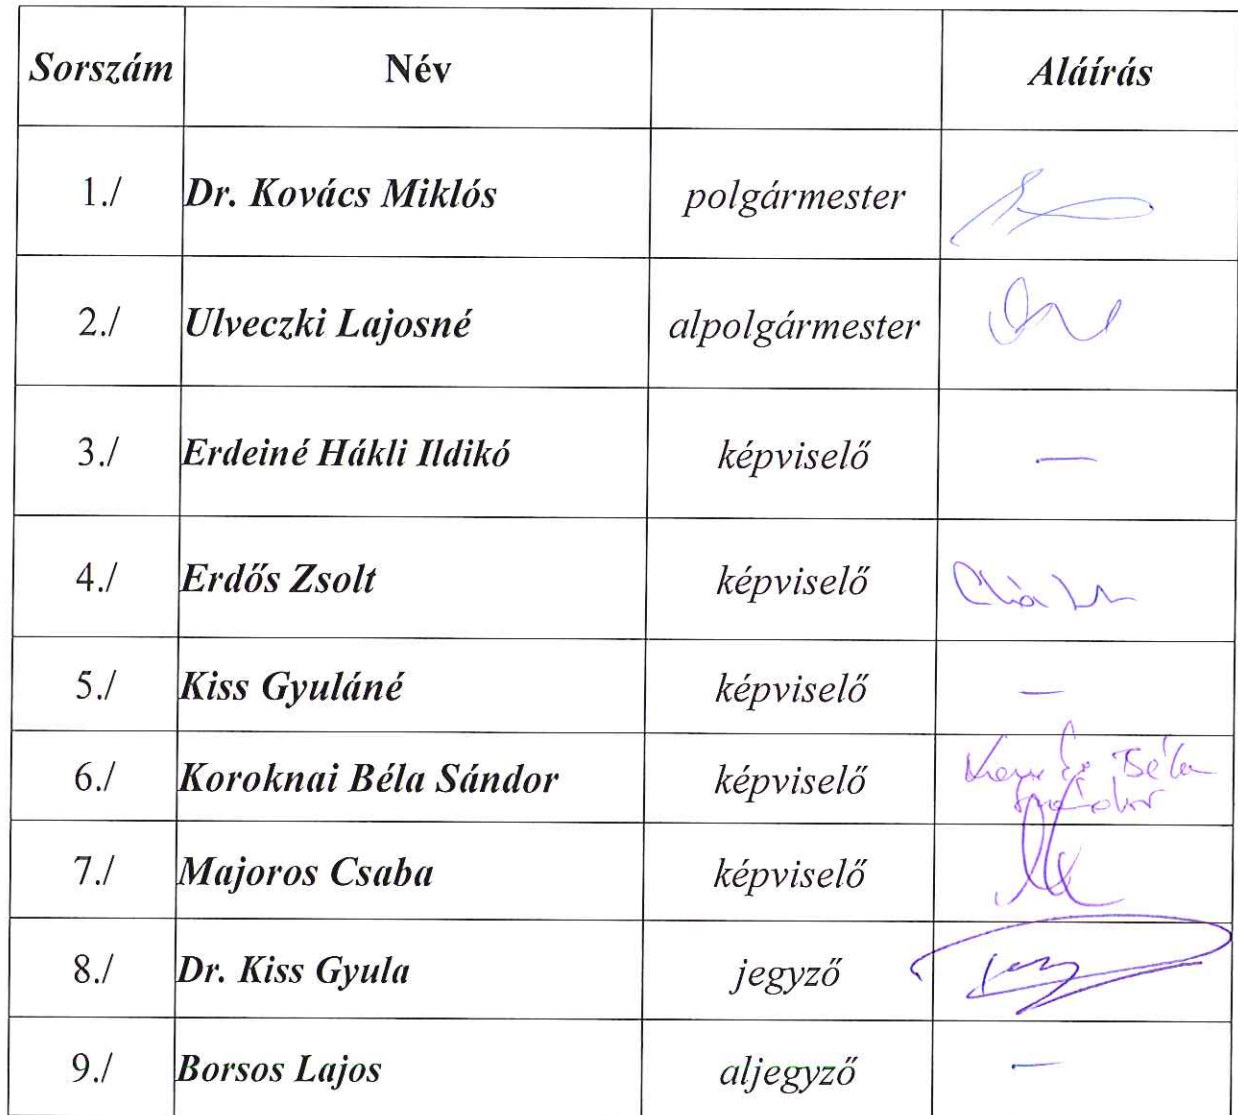 Sorszám Név Aláírás
1./ Dr. Kovács Miklós polgármester
2./ Ulveczki Lajosné alpolgármester
3./ Erdeiné Hákli Ildikó képviselő —
4./ Erdős Zsolt képviselő
5./ Kiss Gyuláné képviselő —
6./ Koroknai Béla Sándor képviselő Béla
7./ Majoros Csaba képviselő
8./ Dr. Kiss Gyula jegyző
9./ Borsos Lajos aljegyző —